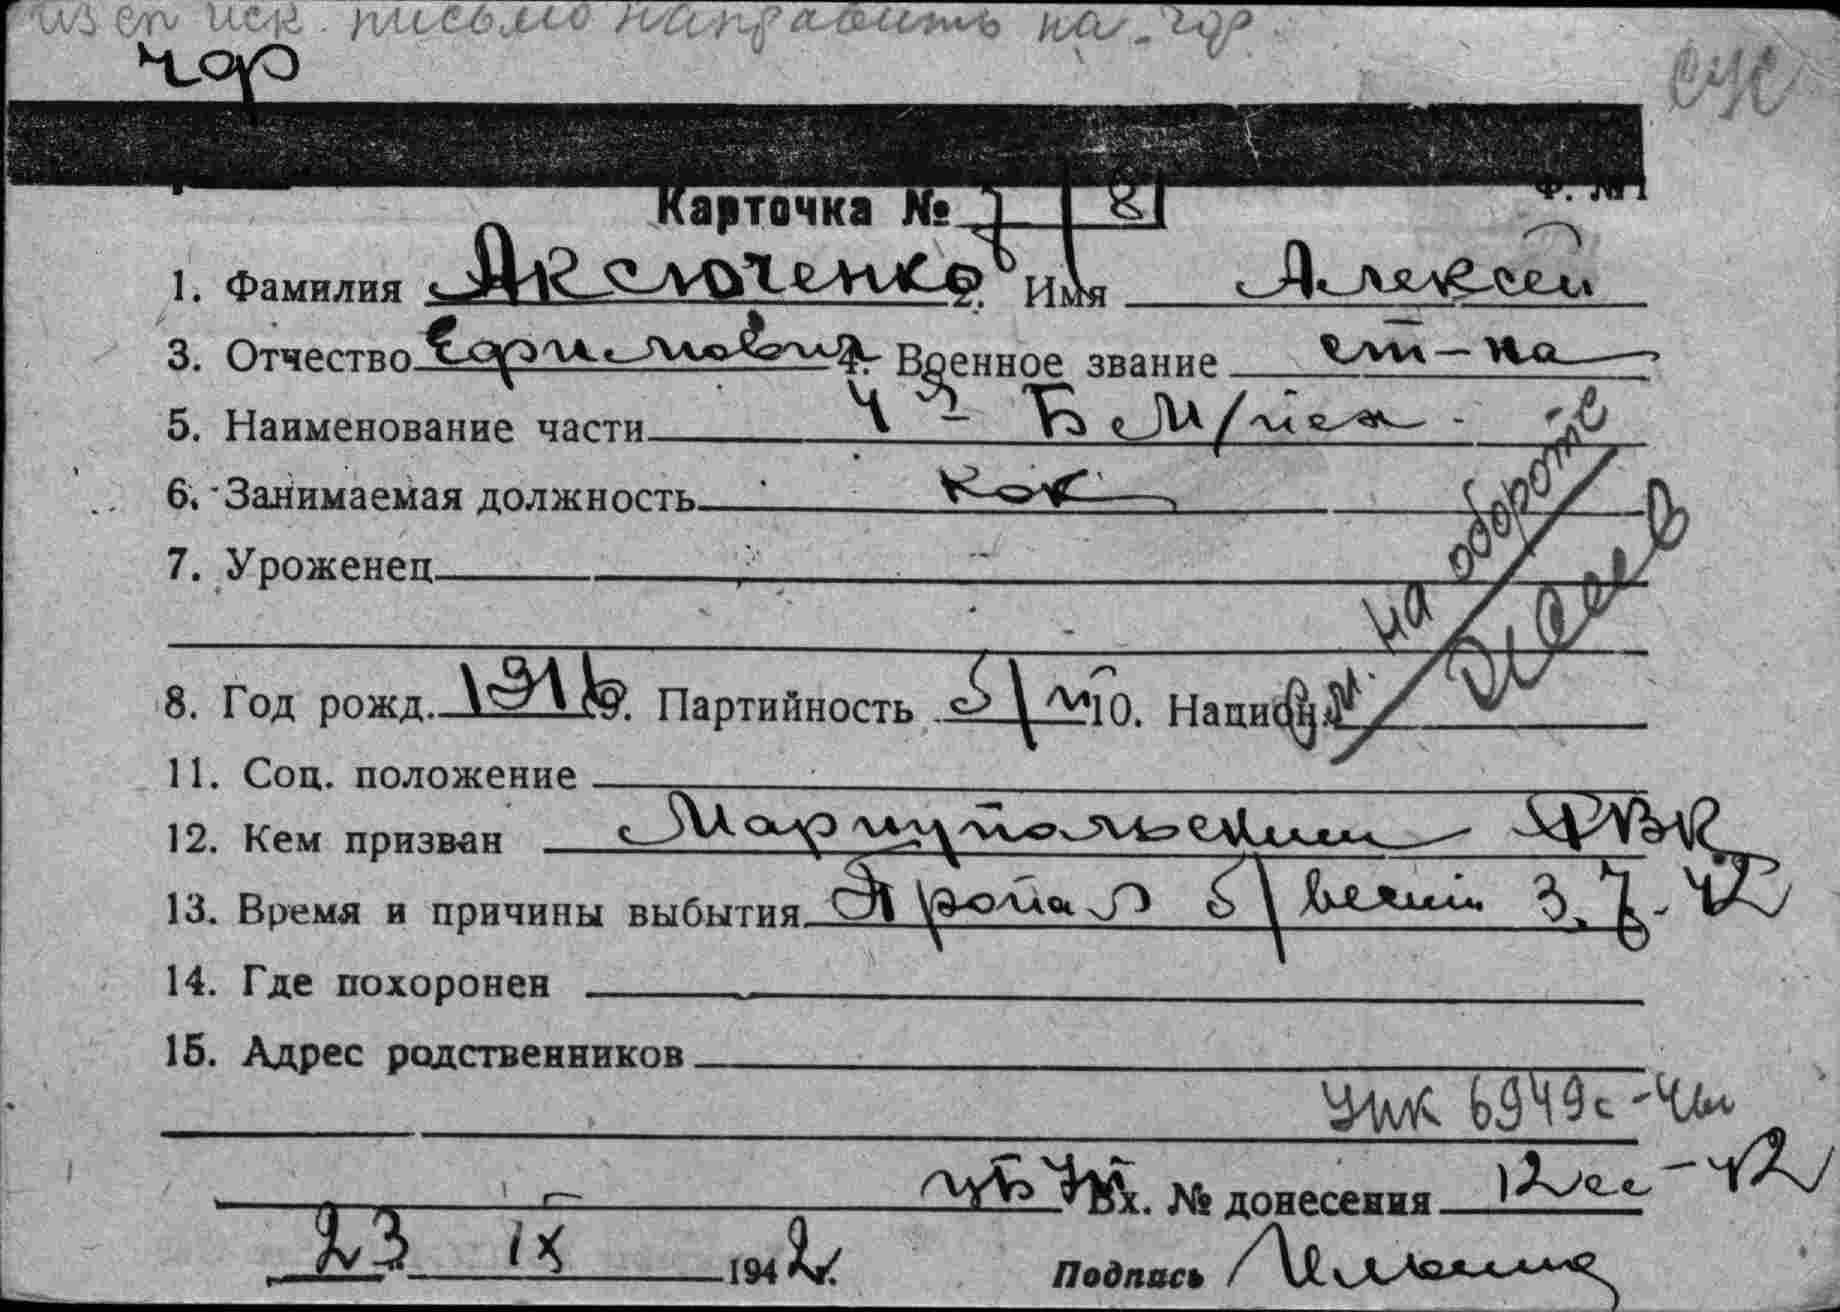 из сп иск. письмо направить на чф
чф
сус
Ф. №1
Карточка №
1. Фамилия Аксюченко 2. Имя Алексей
3. Отчество Ефимович 4. Военное звание ст-на
5. Наименование части 4й
6. Занимаемая должность кок
7. Уроженец
см. на обороте
8. Год рожд. 1916 9. Партийность б/п 10. Национ.
11. Соц. положение
12. Кем призван Мариупольским РВК
13. Время и причины выбытия Пропал б/вести 3.7.42
14. Где похоронен
15. Адрес родственников
УПК 6949с-
Вх. № донесения 12сс-42
23 IX 1942 г. Подпись